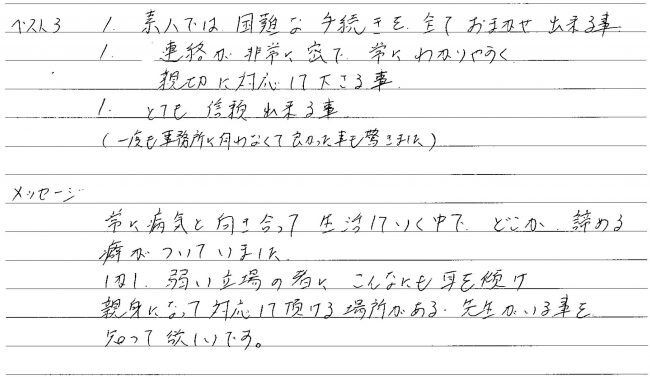 ベスト3 1. 素人では困難な手続きを全ておまかせ出来る事
1. 連絡が非常に密で常にわかりやすく
親切に対応して下さる事
1. とても信頼出来る事
(一度も事務所に伺わなくて良かった事も驚きました)
メッセージ
常に病気と向き合って生活していく中で、どこか、諦める
癖がついていました。
しかし、弱い立場の者に、こんなにも耳を傾け
親身になって対応して頂ける場所がある、先生がいる事を
知って欲しいです。